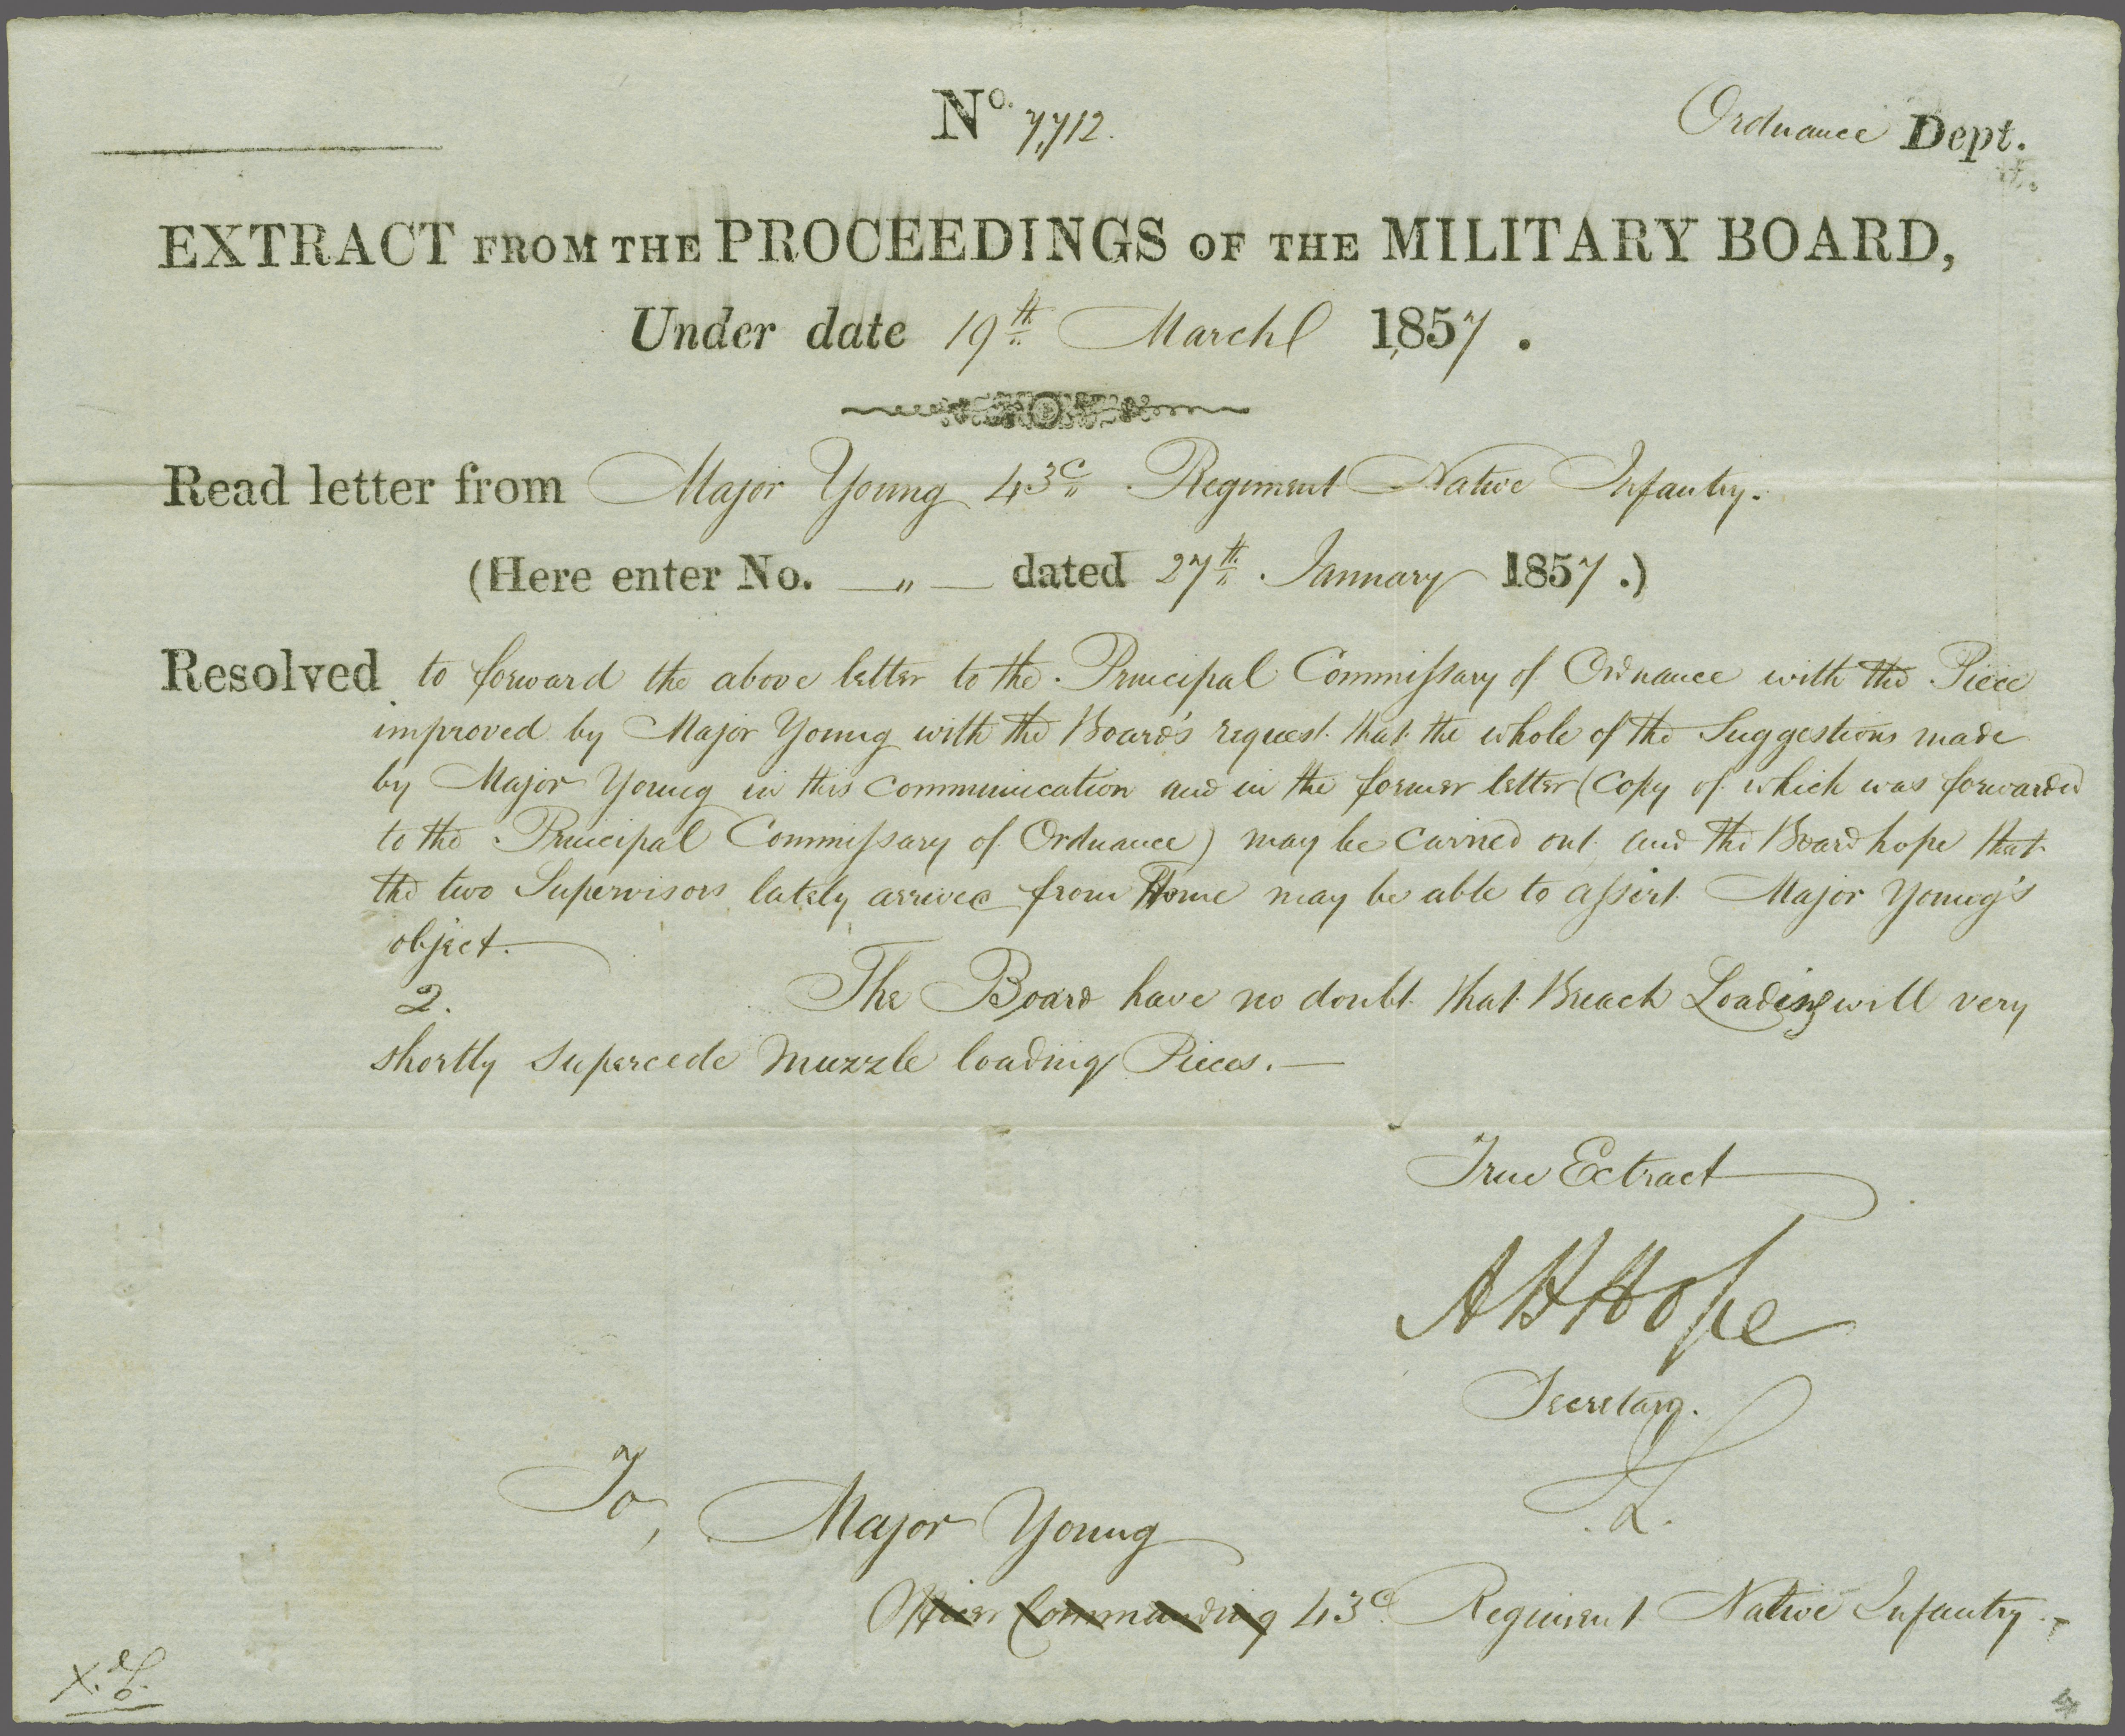 No. 7,712.
Ordnance Dept.
EXTRACT FROM THE PROCEEDINGS OF THE MILITARY BOARD,
Under date 19th March 1857.
Read letter from Major Young 43d Regiment Native Infantry.
(Here enter No. —„— dated 27th January 1857.)
Resolved to forward the above letter to the Principal Commissary of Ordnance with the Piece
improved by Major Young with the Board's request that the whole of the Suggestions made
by Major Young in this communication and in the former letter (copy of which was forwarded
to the Principal Commissary of Ordnance) may be carried out and the Board hope that
the two Supervisors lately arrived from Home may be able to assist Major Young's
object.
2. The Board have no doubt that Breach Loading will very
shortly supercede Muzzle loading Pieces.—
True Extract
A H Hope
Secretary.
To,
Major Young
Officer Commanding 43d Regiment Native Infantry.